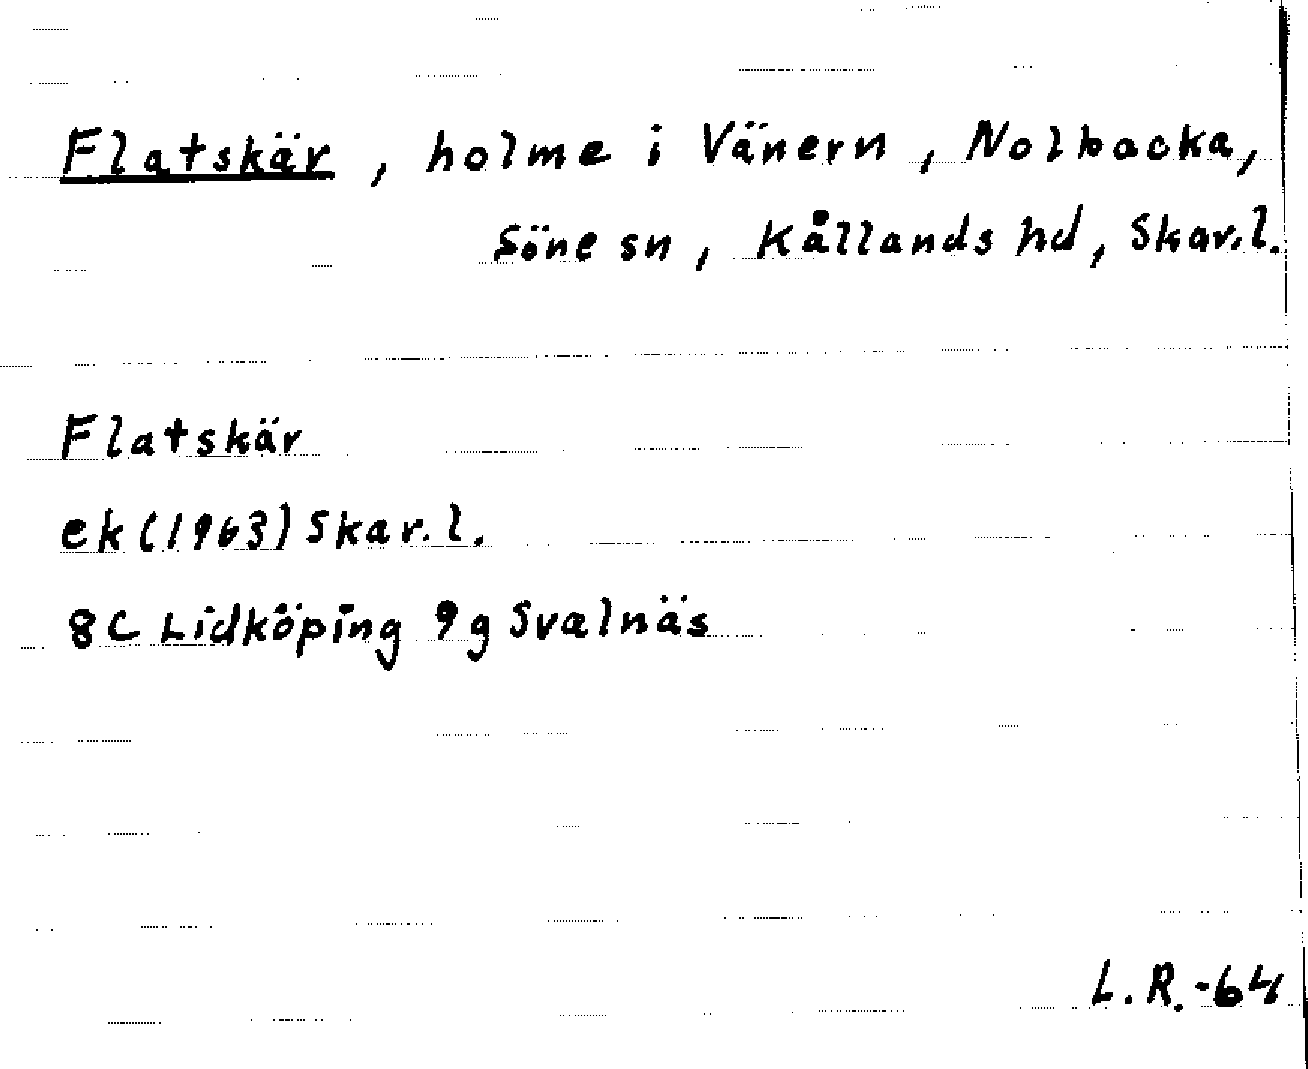 Flatskär, holme i Vänern, Nolbacka,
Söne sn, Kållands hd, Skar.l.
Flatskär
ek (1963) Skar.l.
8C Lidköping 9g Svalnäs
L.R.-64